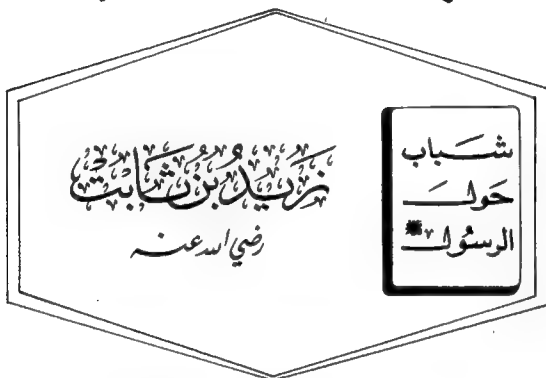 شباب
حول
الرسول ﷺ
زَيْدُ بْنُ ثَابِتٍ
رضي الله عنه